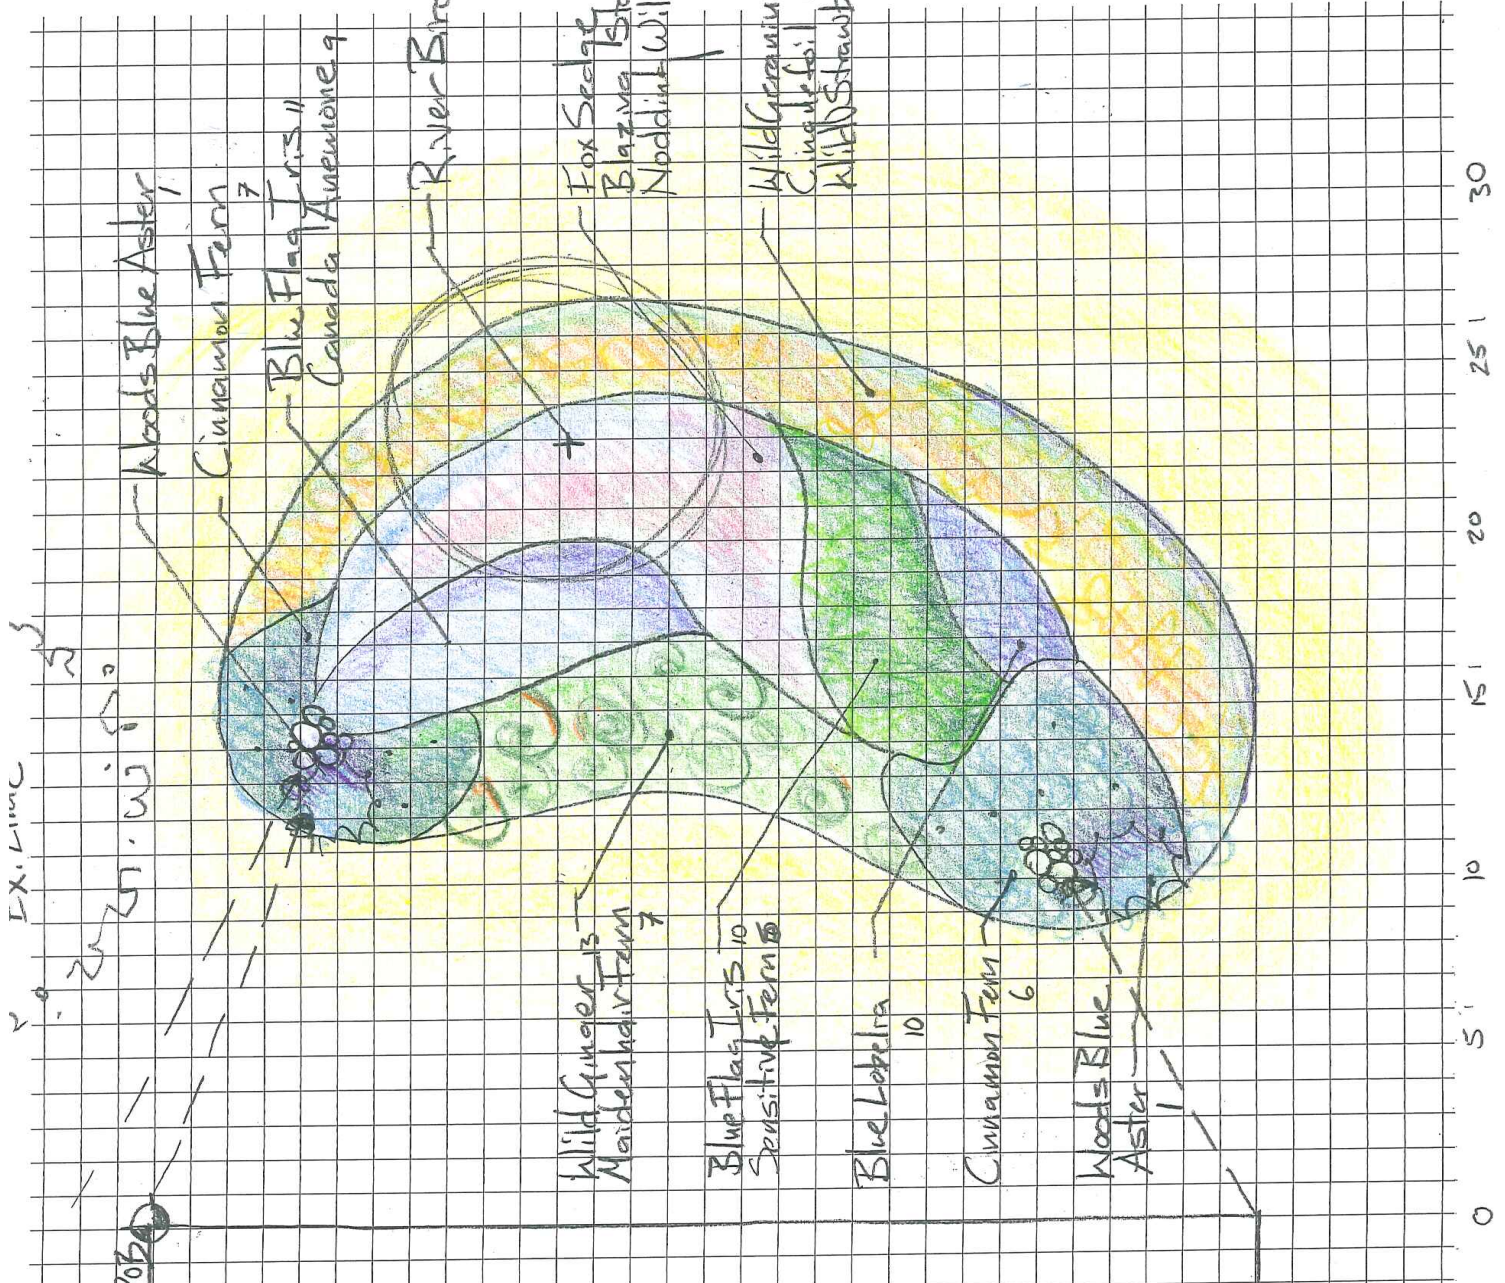 Woods Blue Aster
1
Cinnamon Fern
7
Blue Flag Iris 11
Canada Anemone 9
River Bir
Fox Sedge
Blazing Sta
Nodding Wil
Wild Geraniu
Cinquefoil
Wild Strawb
Wild Ginger 13
Maidenhair Fern
7
Blue Flag Iris 10
Sensitive Fern
Blue Lobelia
10
Cinnamon Fern
6
Woods Blue
Aster
1
Ex. Line
POB
0
5'
10
15'
20
25'
30